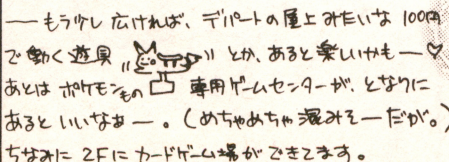 ーもう少し広ければ、デパートの屋上みたいな100円
で動く遊具 とか、あると楽しいかもー♡
あとはポケモンもの専用ゲームセンターが、となりに
あるといいなぁー。(めちゃめちゃ混みそーだが。)
ちなみに2Fにカードゲーム場ができてます。